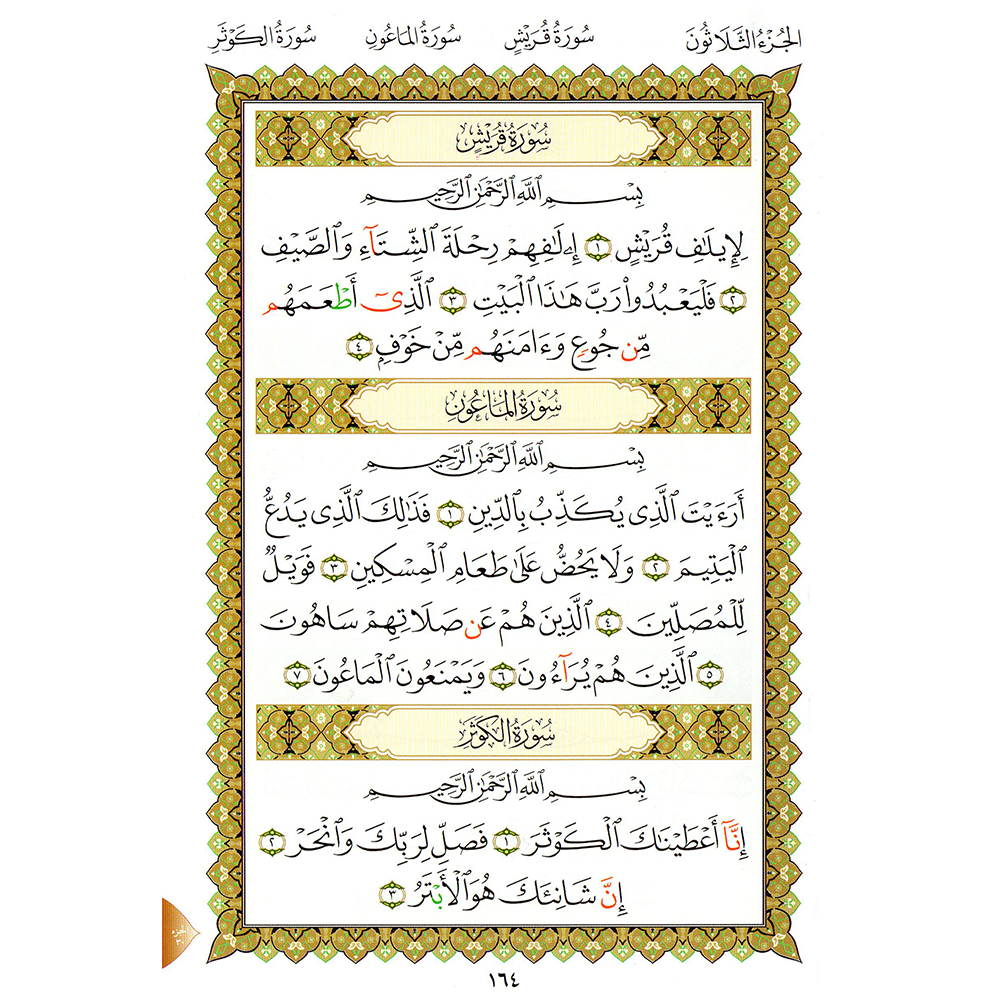 الجُزْءُ الثَّلَاثُونَ سُورَةُ قُرَيْشٍ سُورَةُ المَاعُونِ سُورَةُ الكَوْثَرِ
سُورَةُ قُرَيْشٍ
بِسْمِ ٱللَّهِ ٱلرَّحْمَٰنِ ٱلرَّحِيمِ
لِإِيلَٰفِ قُرَيْشٍ ١ إِۦلَٰفِهِمْ رِحْلَةَ ٱلشِّتَآءِ وَٱلصَّيْفِ
٢ فَلْيَعْبُدُوا۟ رَبَّ هَٰذَا ٱلْبَيْتِ ٣ ٱلَّذِىٓ أَطْعَمَهُم
مِّن جُوعٍ وَءَامَنَهُم مِّنْ خَوْفٍۭ ٤
سُورَةُ المَاعُونِ
بِسْمِ ٱللَّهِ ٱلرَّحْمَٰنِ ٱلرَّحِيمِ
أَرَءَيْتَ ٱلَّذِى يُكَذِّبُ بِٱلدِّينِ ١ فَذَٰلِكَ ٱلَّذِى يَدُعُّ
ٱلْيَتِيمَ ٢ وَلَا يَحُضُّ عَلَىٰ طَعَامِ ٱلْمِسْكِينِ ٣ فَوَيْلٌ
لِّلْمُصَلِّينَ ٤ ٱلَّذِينَ هُمْ عَن صَلَاتِهِمْ سَاهُونَ
٥ ٱلَّذِينَ هُمْ يُرَآءُونَ ٦ وَيَمْنَعُونَ ٱلْمَاعُونَ ٧
سُورَةُ الكَوْثَرِ
بِسْمِ ٱللَّهِ ٱلرَّحْمَٰنِ ٱلرَّحِيمِ
إِنَّآ أَعْطَيْنَٰكَ ٱلْكَوْثَرَ ١ فَصَلِّ لِرَبِّكَ وَٱنْحَرْ ٢
إِنَّ شَانِئَكَ هُوَ ٱلْأَبْتَرُ ٣
جزء
٣٠
١٦٤